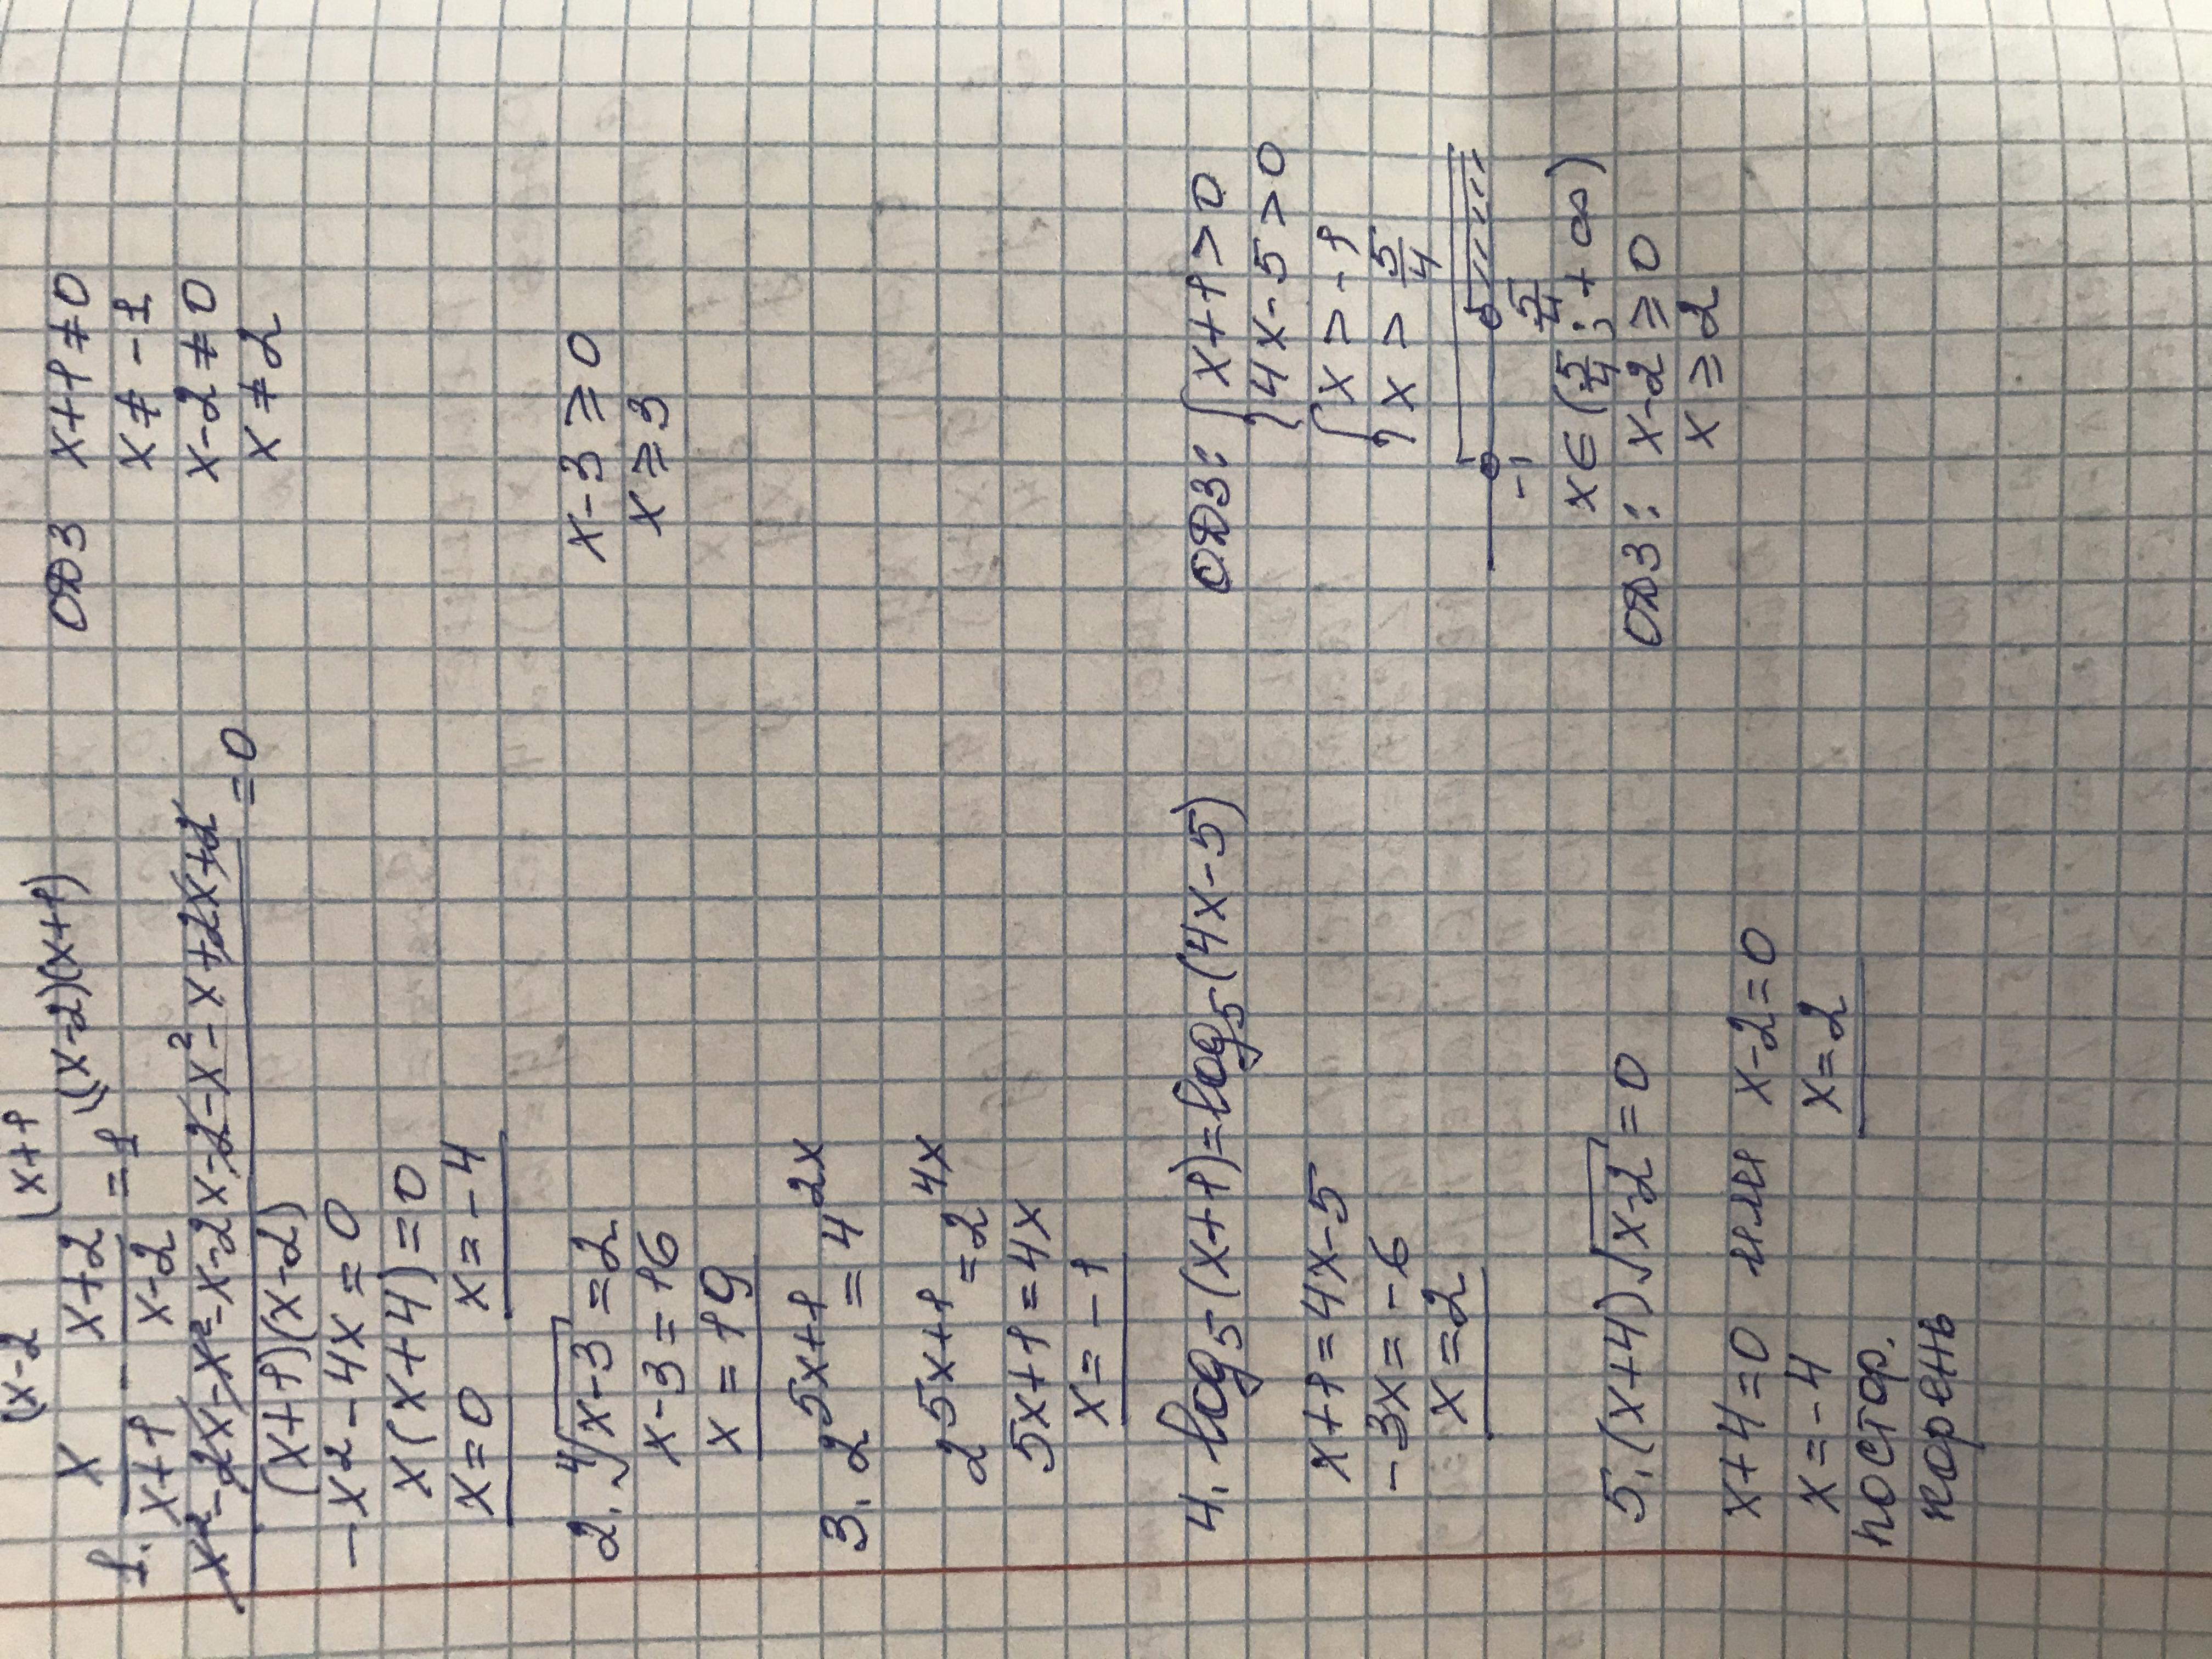 (x-2 (x+1
1. x/(x+1) - (x+2)/(x-2) = 1 \((x-2)(x+1) ОДЗ x+1≠0
x≠-1
x²-2x-x²-x-2x-2-x²-x+2x+2 x-2≠0
(x+1)(x-2) =0 x≠2
-x²-4x=0
x(x+4)=0
x=0 x=-4
2. ⁴√(x-3)=2 x-3≥0
x-3=16 x≥3
x=19
3. 2^(5x+1) = 4^(2x)
2^(5x+1) = 2^(4x)
5x+1=4x
x=-1
4. log₅(x+1)=log₅(4x-5) ОДЗ: { x+1>0
4x-5>0
x+1=4x-5 { x>-1
-3x=-6 x>5/4
x=2
-1 5/4
x∈(5/4;+∞)
5. (x+4)√(x-2)=0 ОДЗ: x-2≥0
x≥2
x+4=0 или x-2=0
x=-4 x=2
постор.
корень